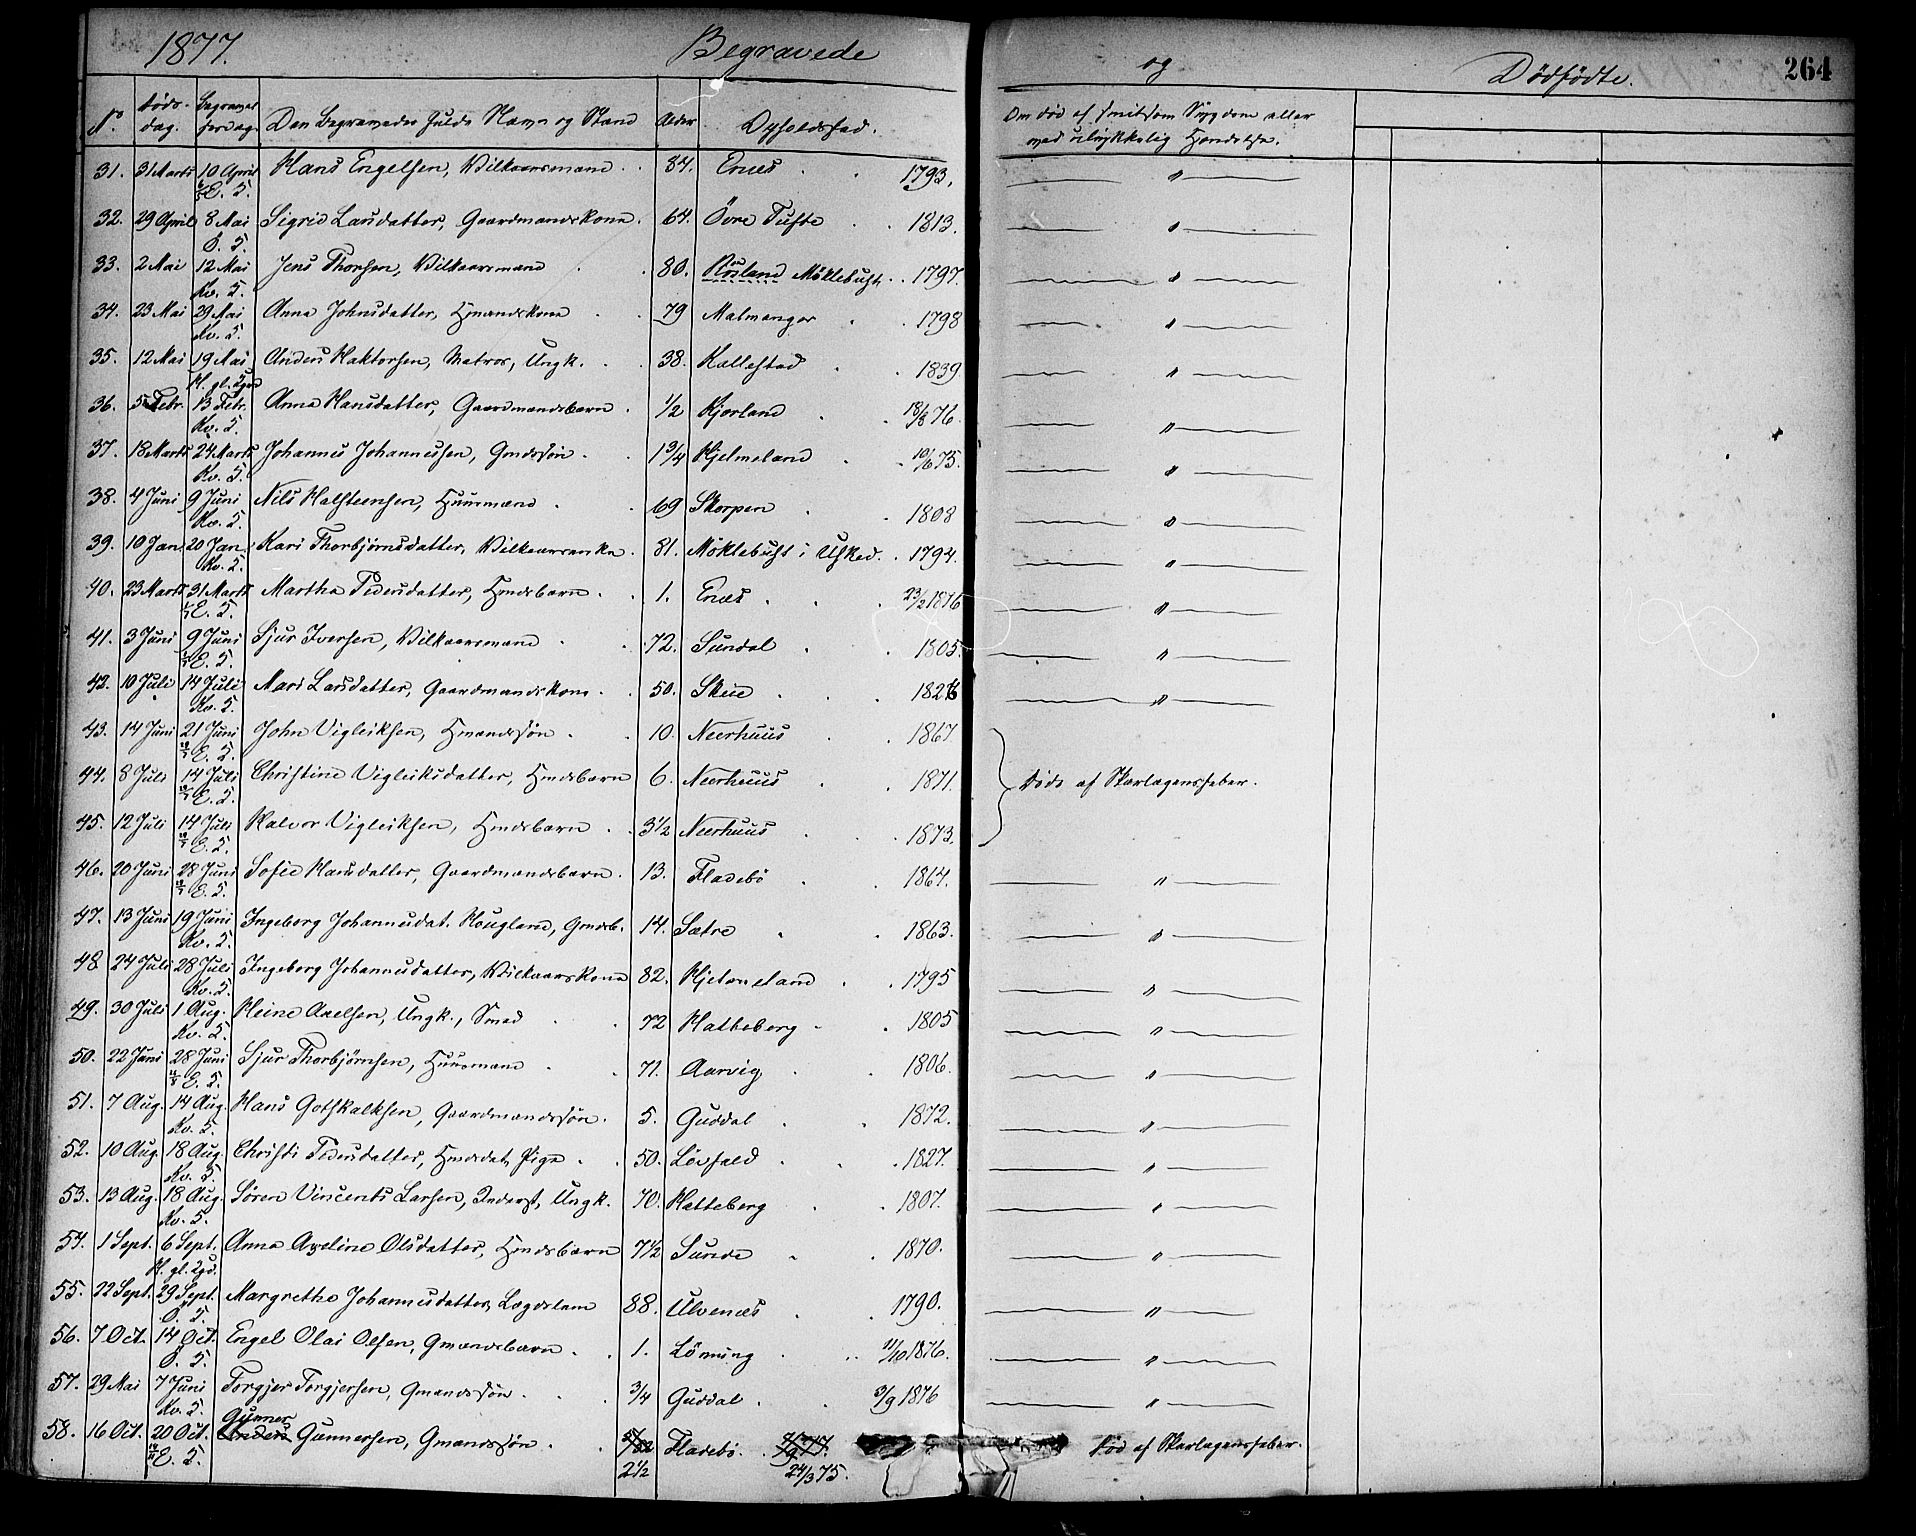 1877. Begravede og Dødfødte. 264
No. Døds-dag. Begravelsesdag. Den Begravedes fulde Navn og Stand Alder Opholdssted. Om død af smitsom Sygdom eller ved ulykkelig Hændelse.
31. 31 Marts 10 April Hans Engelsen, Vilkaarsmand 84. Enæs 1793. "
E. 5.
32. 29 April 8 Mai Sigrid Larsdatter, Gaardmandskone 64. Övre Tufte 1813. "
Ö. 5.
33. 2 Mai 12 Mai Jens Thorsen, Vilkaarsmand 80. Rösland Möklebust 1797. "
Kv. 5.
34. 23 Mai 29 Mai Anna Johnsdatter, Hmandskone 79 Malmanger 1798 "
Kv. 5.
35. 12 Mai 19 Mai Anders Haktorsen, Matros, Ungk. 38. Kallestad 1839. "
H. gl. Kgd
36. 5 Febr. 13 Febr. Anna Hansdatter, Gaardmandsbarn 1/2 Kjærland 18/8 76. "
Kv. 5.
37. 18 Marts 24 Marts Johannes Johannessen, Gmdssön 1 3/4 Hjelmeland 10/6 75. "
Kv. 5.
38. 4 Juni 9 Juni Nils Halsteensen, Huusmand 69 Skorpen 1808 "
Kv. 5.
39. 10 Jan. 20 Jan. Kari Thorbjörnsdatter, Vilkaarsenke 81. Möklebust i Usked. 1794. "
Kv. 5.
40. 23 Marts 31 Marts Martha Pedersdatter, Hmdsbarn 1. Enæs 23/2 1876 "
E. 5.
41. 3 Juni 9 Juni Sjur Iversen, Vilkaarsmand 72. Sundal 1805. "
E. 5.
42. 10 Juli 14 Juli Mari Larsdatter, Gaardmandskone 50. Skeie 1826 "
Kv. 5.
43. 14 Juni 21 Juni John Vigleiksen, Hmandssön 10. Neerhuus 1867
E. 5.
44. 8 Juli 14 Juli Christine Vigleiksdatter, Hmdsbarn 6. Neerhuus 1871. Døde af Skarlagensfeber.
E. 5.
45. 12 Juli 14 Juli Halvor Vigleiksen, Hmdsbarn 3 1/2 Neerhuus 1873.
E. 5.
46. 20 Juni 28 Juni Sofie Hansdatter, Gaardmandsbarn 13. Fladebö 1864. "
E. 5.
47. 13 Juni 19 Juni Ingeborg Johannesdat. Hougland, Gmdsb. 14. Sætre 1863. "
Kv. 5.
48 24 Juli 28 Juli Ingeborg Johannesdatter, Vilkaarskone 82. Hjelmeland 1795 "
Kv. 5.
49. 30 Juli 1 Aug. Heine Axelsen, Ungk., Smed 72 Hatteberg 1805 "
Kv. 5.
50. 22 Juni 28 Juni Sjur Thorbjörnsen, Huusmand 71. Aarvig 1806. "
E. 5.
51. 7 Aug. 14 Aug. Hans Gotskalksen, Gaardmandssön 5. Guddal 1872. "
Kv. 5.
52. 10 Aug 18 Aug. Christi Pedersdatter, Hmdsdat. Pige 50. Löfald 1827. "
Kv. 5.
53. 13 Aug. 18 Aug. Sören Vincents Larsen, Inderst, Ungk. 70. Hatteberg 1807. "
Kv. 5.
54. 1 Sept. 6 Sept. Anna Axeline Olsdatter, Hmdsbarn 7 1/2 Sunde 1870. "
H. gl. Kgd.
55. 22 Sept. 29 Sept. Margrethe Johannesdatter, Lægdslem 88. Ulvenæs 1790. "
Ö. 5.
56. 7 Oct. 14 Oct. Engel Olai Olsen, Gmandsbarn 1. Lönning 11/10 1876. "
Ö. 5.
57. 29 Mai 7 Juni Torgjer Torgjersen, Gmandssön 3/4 Guddal 3/9 1876 "
Kv. 5.
Gunner
58. 16 Oct. 20 Oct. Anders Gunnersen, Gmandssön Fladebö. Død af Skarlagensfeber.
E. 5. 2 1/2 24/3 75.